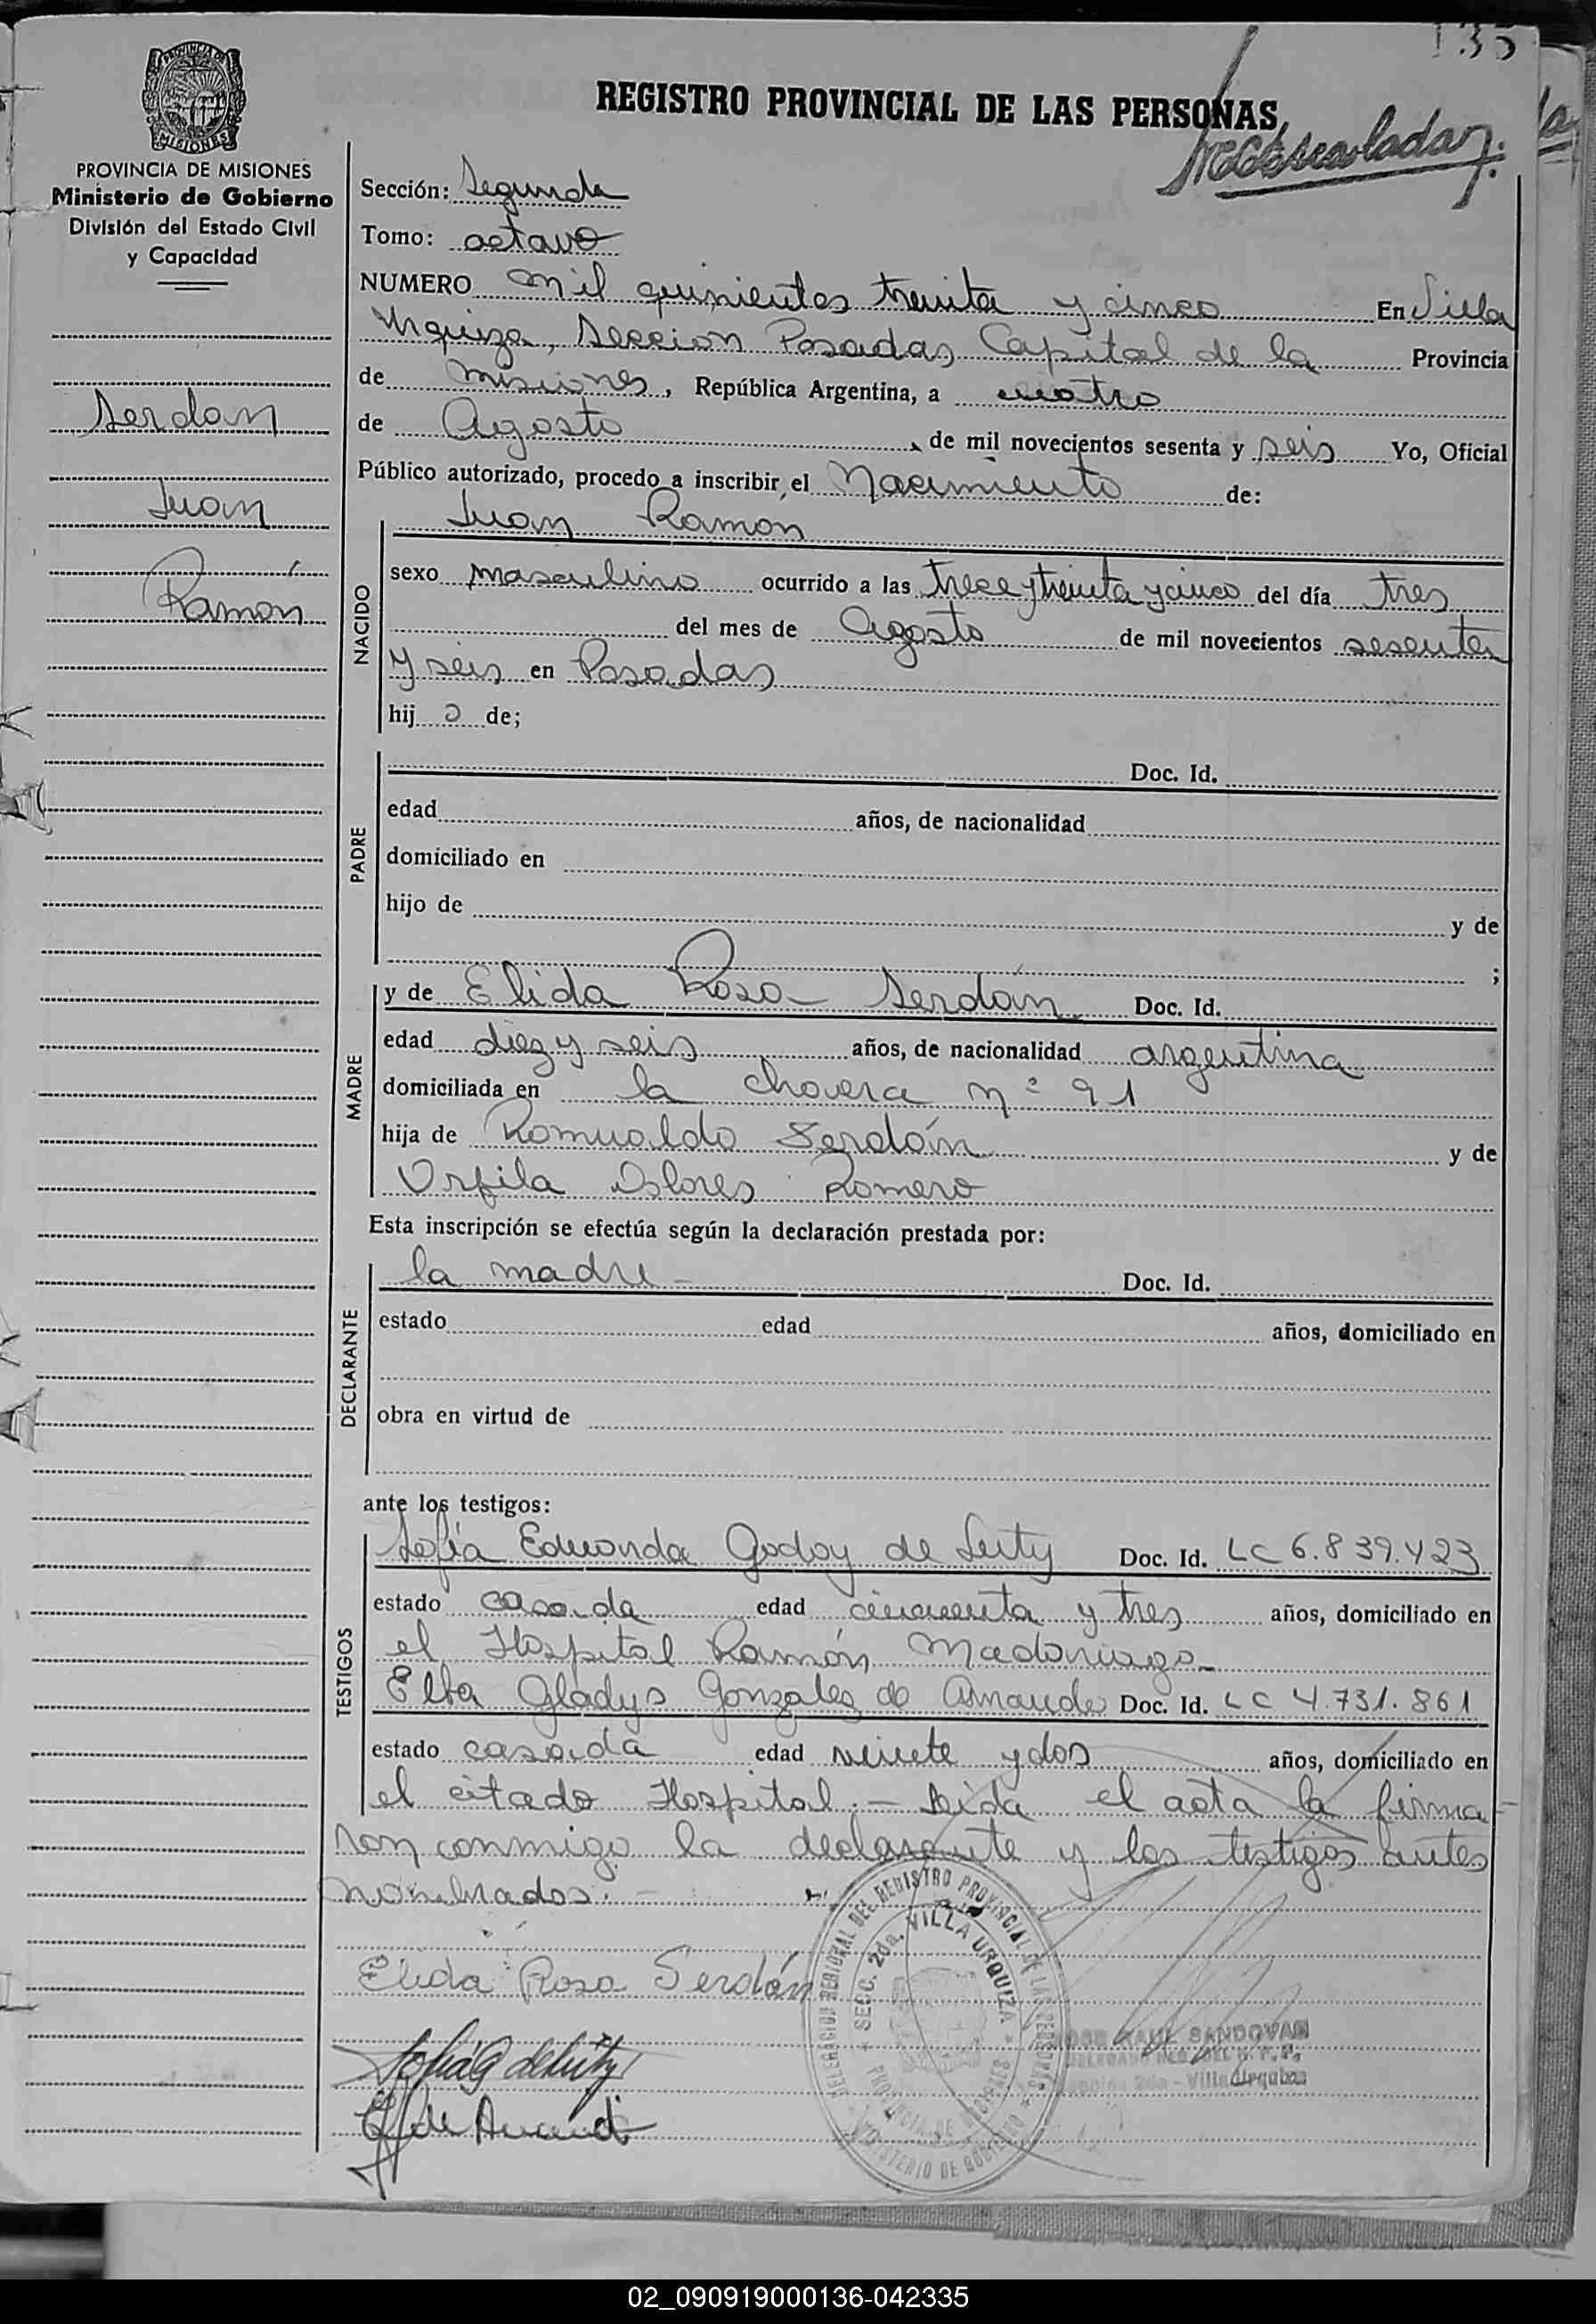 135
REGISTRO PROVINCIAL DE LAS PERSONAS
PROVINCIA DE MISIONES
MISIONES
PROVINCIA DE MISIONES
Ministerio de Gobierno
División del Estado Civil
y Capacidad
Serdan
Juan
Ramón
Sección: Segunda
Tomo: octavo
NUMERO mil quinientos treinta y cinco En Villa
Urquiza, Seccion Posadas Capital de la Provincia
de Misiones, República Argentina, a cuatro
de Agosto, de mil novecientos sesenta y seis Yo, Oficial
Público autorizado, procedo a inscribir el Nacimiento de:
NACIDO
Juan Ramon
sexo masculino ocurrido a las trece y treinta y cinco del día tres
del mes de Agosto de mil novecientos sesenta
y seis en Posadas
hij o de;
PADRE
Doc. Id.
edad años, de nacionalidad
domiciliado en
hijo de y de
;
MADRE
y de Elida Rosa Serdán Doc. Id.
edad diez y seis años, de nacionalidad argentina
domiciliada en la chacra nº 91
hija de Romualdo Serdán y de
Orfila Dolores Romero
Esta inscripción se efectúa según la declaración prestada por:
DECLARANTE
la madre - Doc. Id.
estado edad años, domiciliado en
obra en virtud de
ante los testigos:
TESTIGOS
Sofía Eduarda Godoy de Leity Doc. Id. LC 6.839.423
estado casada edad cincuenta y tres años, domiciliado en
el Hospital Ramón Madariaga -
Elba Gladys Gonzalez de Doc. Id. LC 4.731.861
estado casada edad veinte y dos años, domiciliado en
el citado Hospital. - Leida el acta la firma-
ron conmigo la declarante y los testigos antes
nombrados. -
Elida Rosa Serdán
DELEGACION REGIONAL DEL REGISTRO PROVINCIAL DE LAS PERSONAS
SECC. 2da. VILLA URQUIZA
PROVINCIA DE MISIONES
MINISTERIO DE GOBIERNO
JOSE RAUL SANDOVAL
Sección 2da - Villa Urquiza
02_090919000136-042335